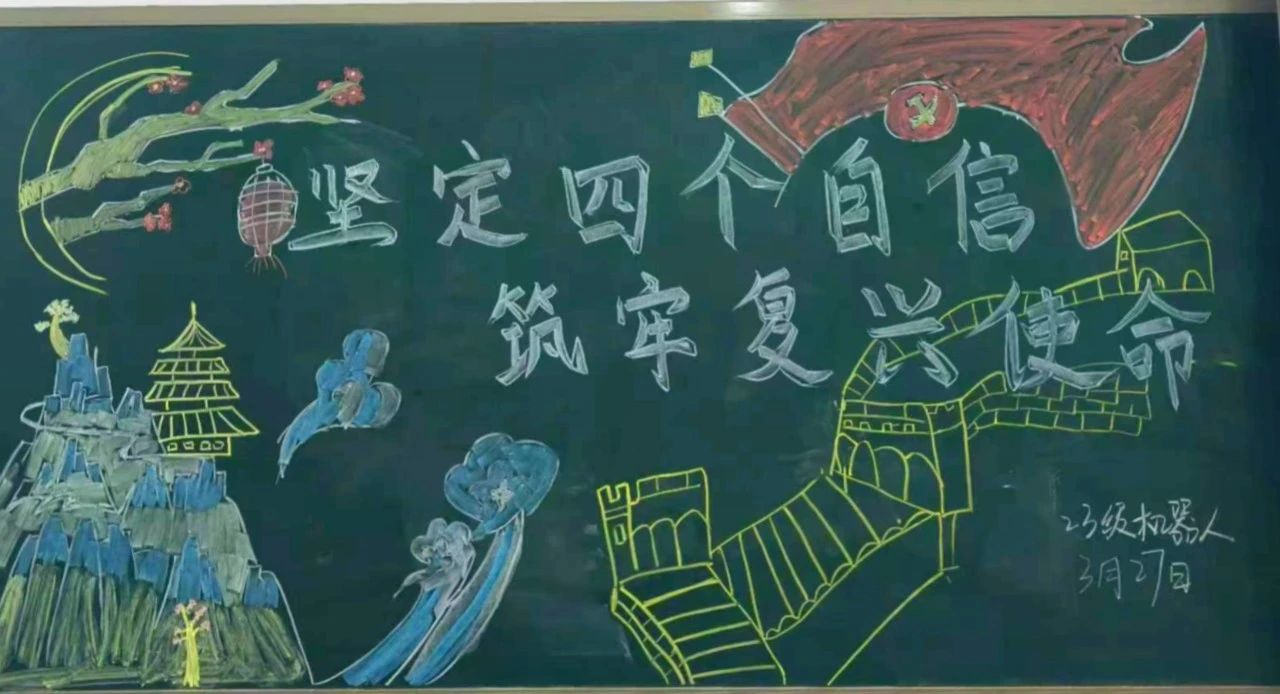 坚定四个自信
筑牢复兴使命
23级机器人
3月27日